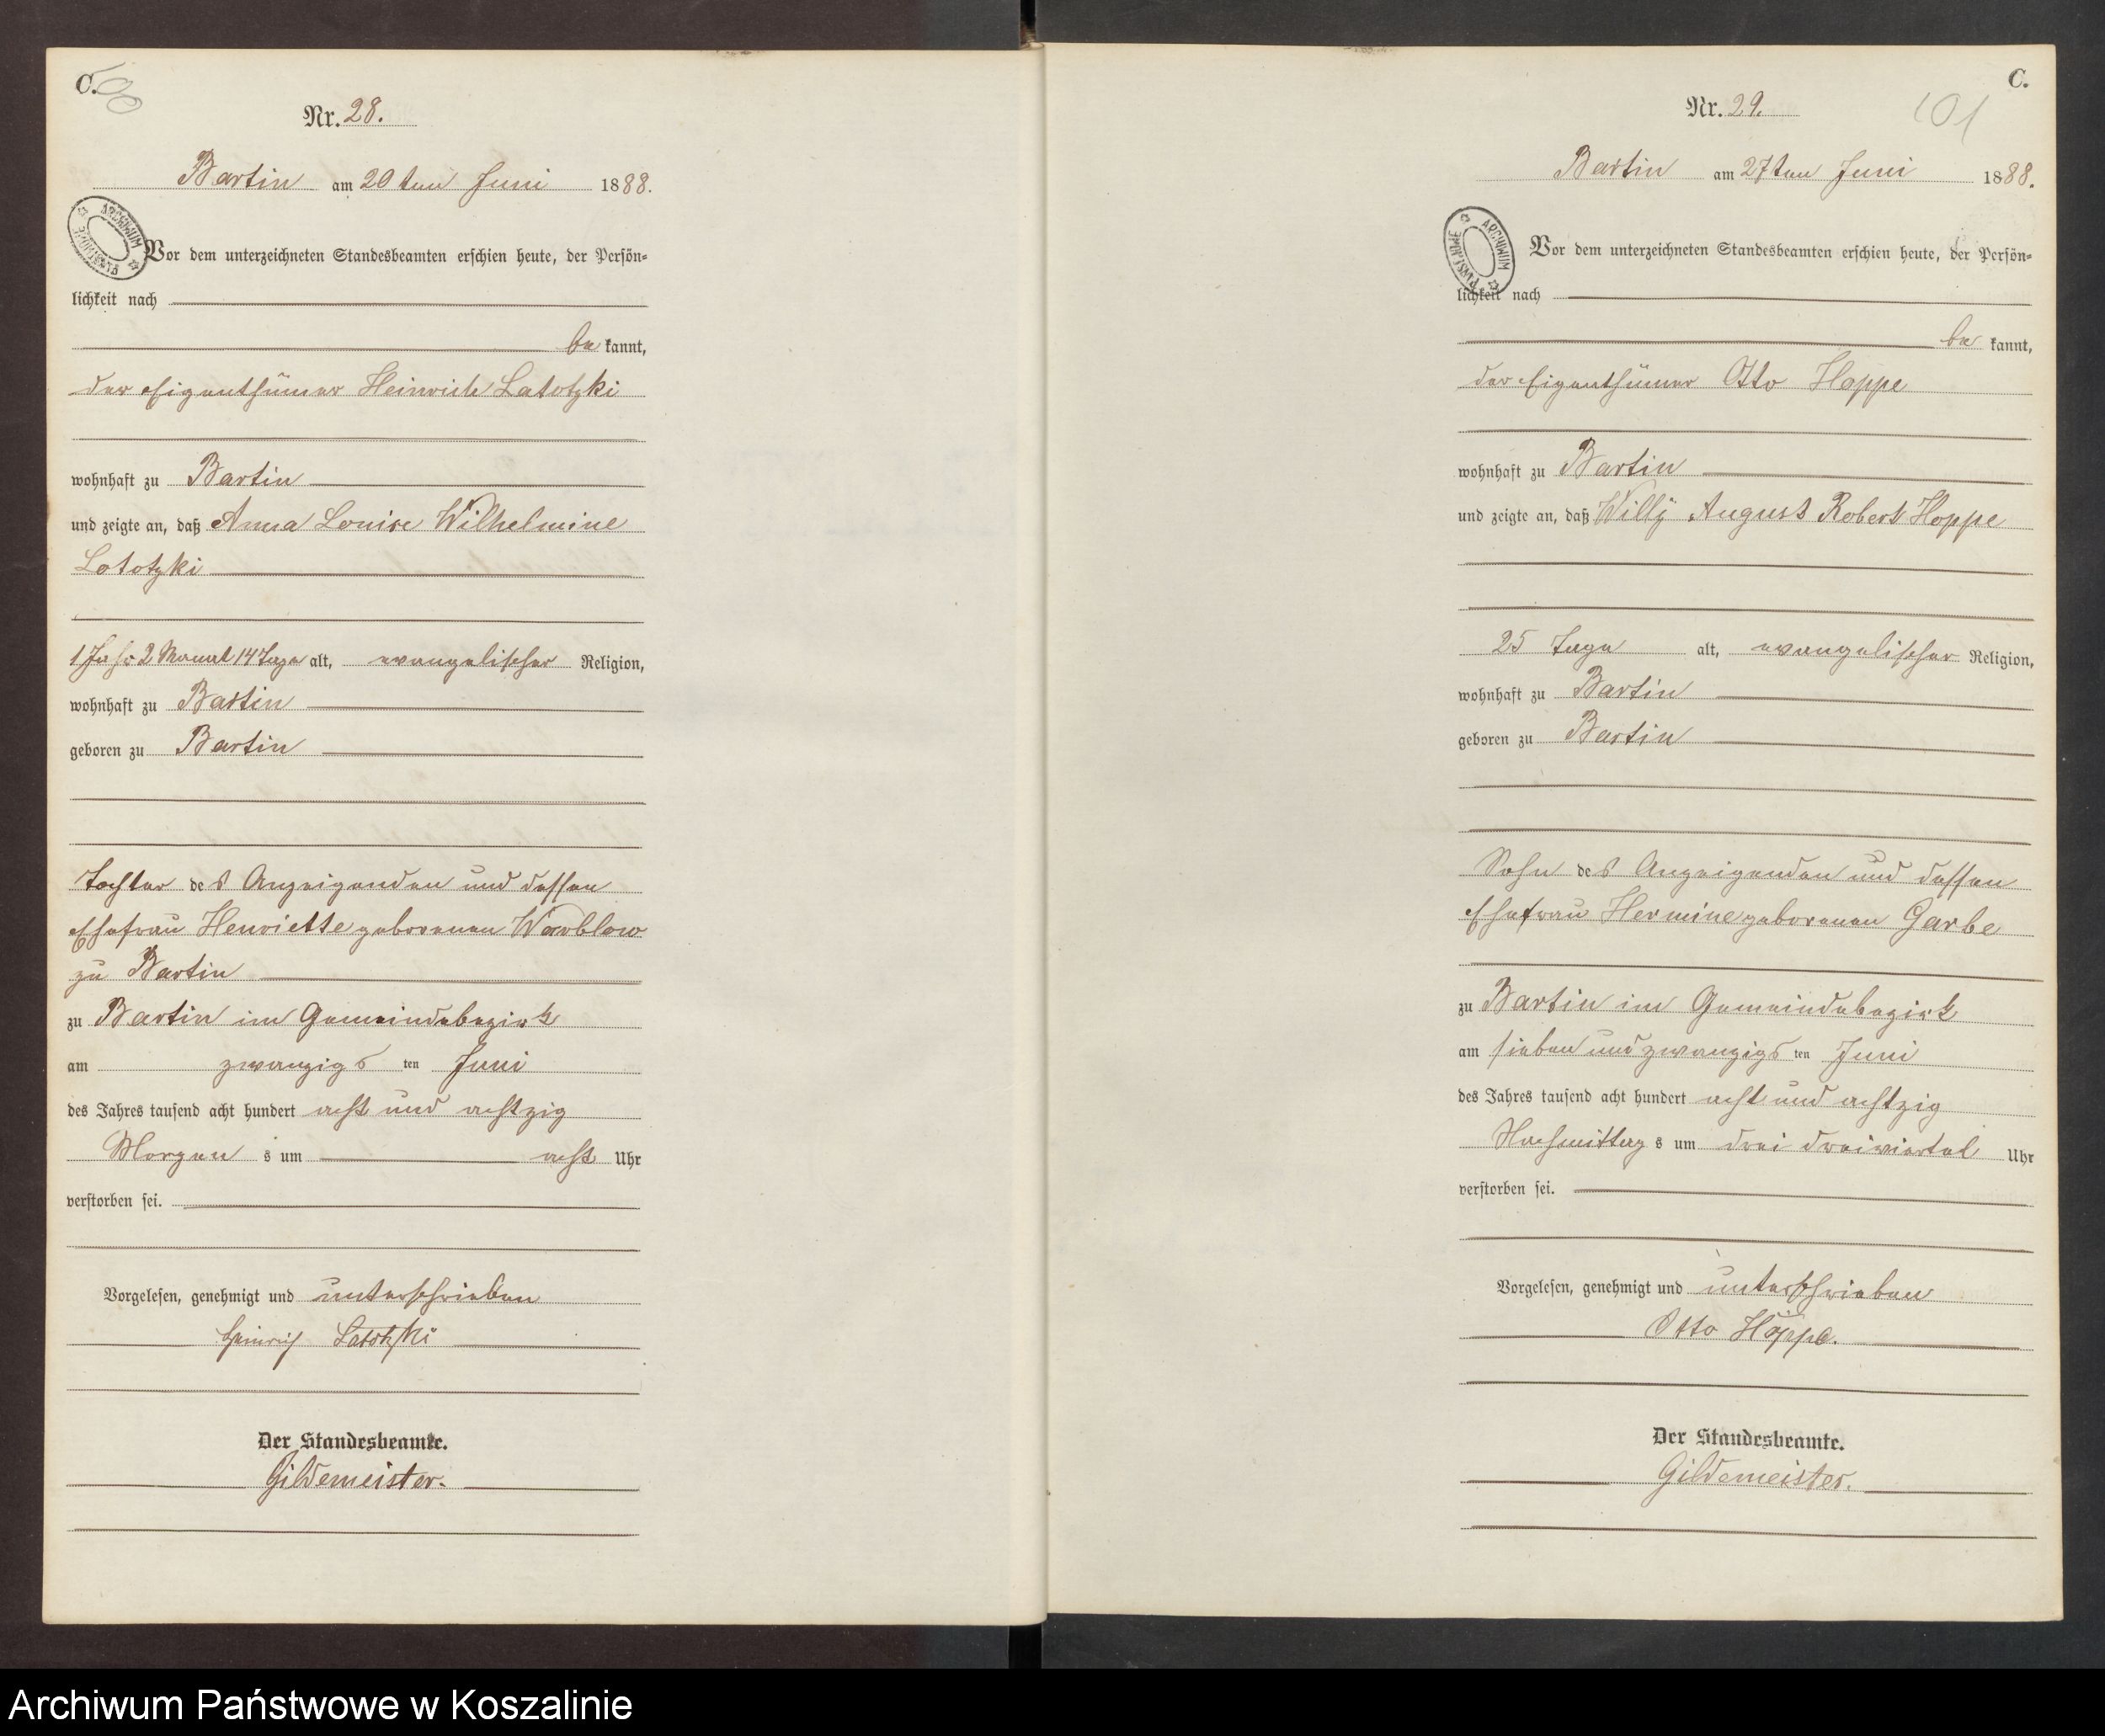 C.
100
Nr. 28.
Bartin am 20 ten Juni 1888.
ARCHIWUM PAŃSTWOWE
Vor dem unterzeichneten Standesbeamten erschien heute, der Persön-
lichkeit nach
be kannt,
der Eigenthümer Heinrich Latotzki
wohnhaft zu Bartin
und zeigte an, daß Anna Louise Wilhelmine
Latotzki
1 Jahr 2 Monat 14 Tage alt, evangelischer Religion,
wohnhaft zu Bartin
geboren zu Bartin
Tochter des Anzeigenden und dessen
Ehefrau Henriette geborenen Warblow
zu Bartin
zu Bartin im Gemeindebezirk
am zwanzigs ten Juni
des Jahres tausend acht hundert acht und achtzig
Morgen s um acht Uhr
verstorben sei.
Vorgelesen, genehmigt und unterschrieben
Heinrich Latotzki
Der Standesbeamte.
Gildemeister.
C.
101
Nr. 29.
Bartin am 27ten Juni 1888.
ARCHIWUM PAŃSTWOWE
Vor dem unterzeichneten Standesbeamten erschien heute, der Persön-
lichkeit nach
be kannt,
der Eigenthümer Otto Hoppe
wohnhaft zu Bartin
und zeigte an, daß Willy August Robert Hoppe
25 Tage alt, evangelischer Religion,
wohnhaft zu Bartin
geboren zu Bartin
Sohn des Anzeigenden und dessen
Ehefrau Hermine geborenen Garbe
zu Bartin im Gemeindebezirk
am sieben und zwanzigs ten Juni
des Jahres tausend acht hundert acht und achtzig
Nachmittag s um drei dreiviertel Uhr
verstorben sei.
Vorgelesen, genehmigt und unterschrieben
Otto Hoppe.
Der Standesbeamte.
Gildemeister.
Archiwum Państwowe w Koszalinie